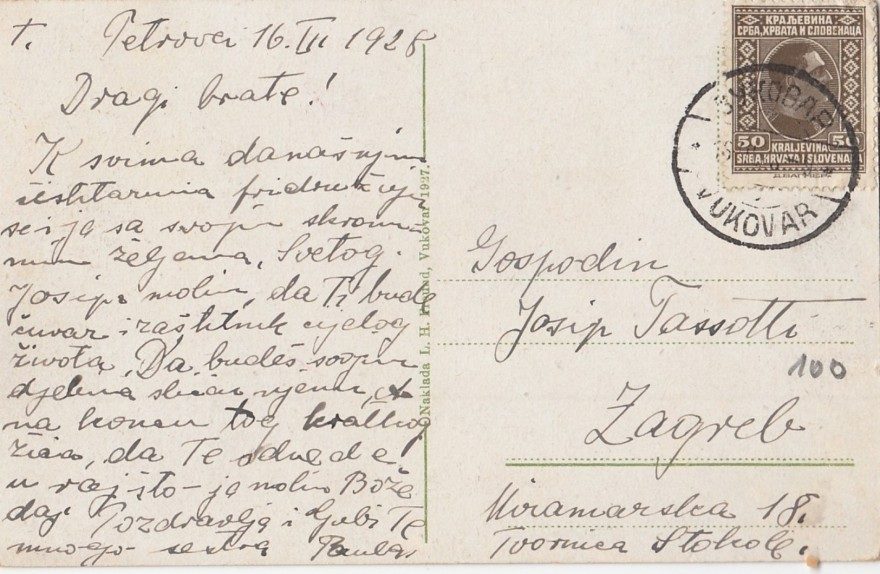 t. Petrovci 16. III 1928
Dragi brate!
K svima današnjim
čestitarima pridružuje
se i ja sa svojim skrom-
nim željama, Svetog
Josipa molim, da Ti bude
čuvar i zaštitnik cijelog
života, Da budeš svojim
djelima sličan njemu, a
na koncu tog kratkog
žića, da Te odvede
u raj što ja molim Bože
daj. Pozdravlja i ljubi Te
mnogo sestra
Naklada L. H. Freund, Vukovar 1927.
КРАЉЕВИНА
СРБА, ХРВАТА И СЛОВЕНАЦА
50 KRALJEVINA 50
SRBA, HRVATA I SLOVENACA
ВУКОВАР
VUKOVAR
Gospodin
Josip Tassotti
100
Zagreb
Miramarska 18.
Tvornica